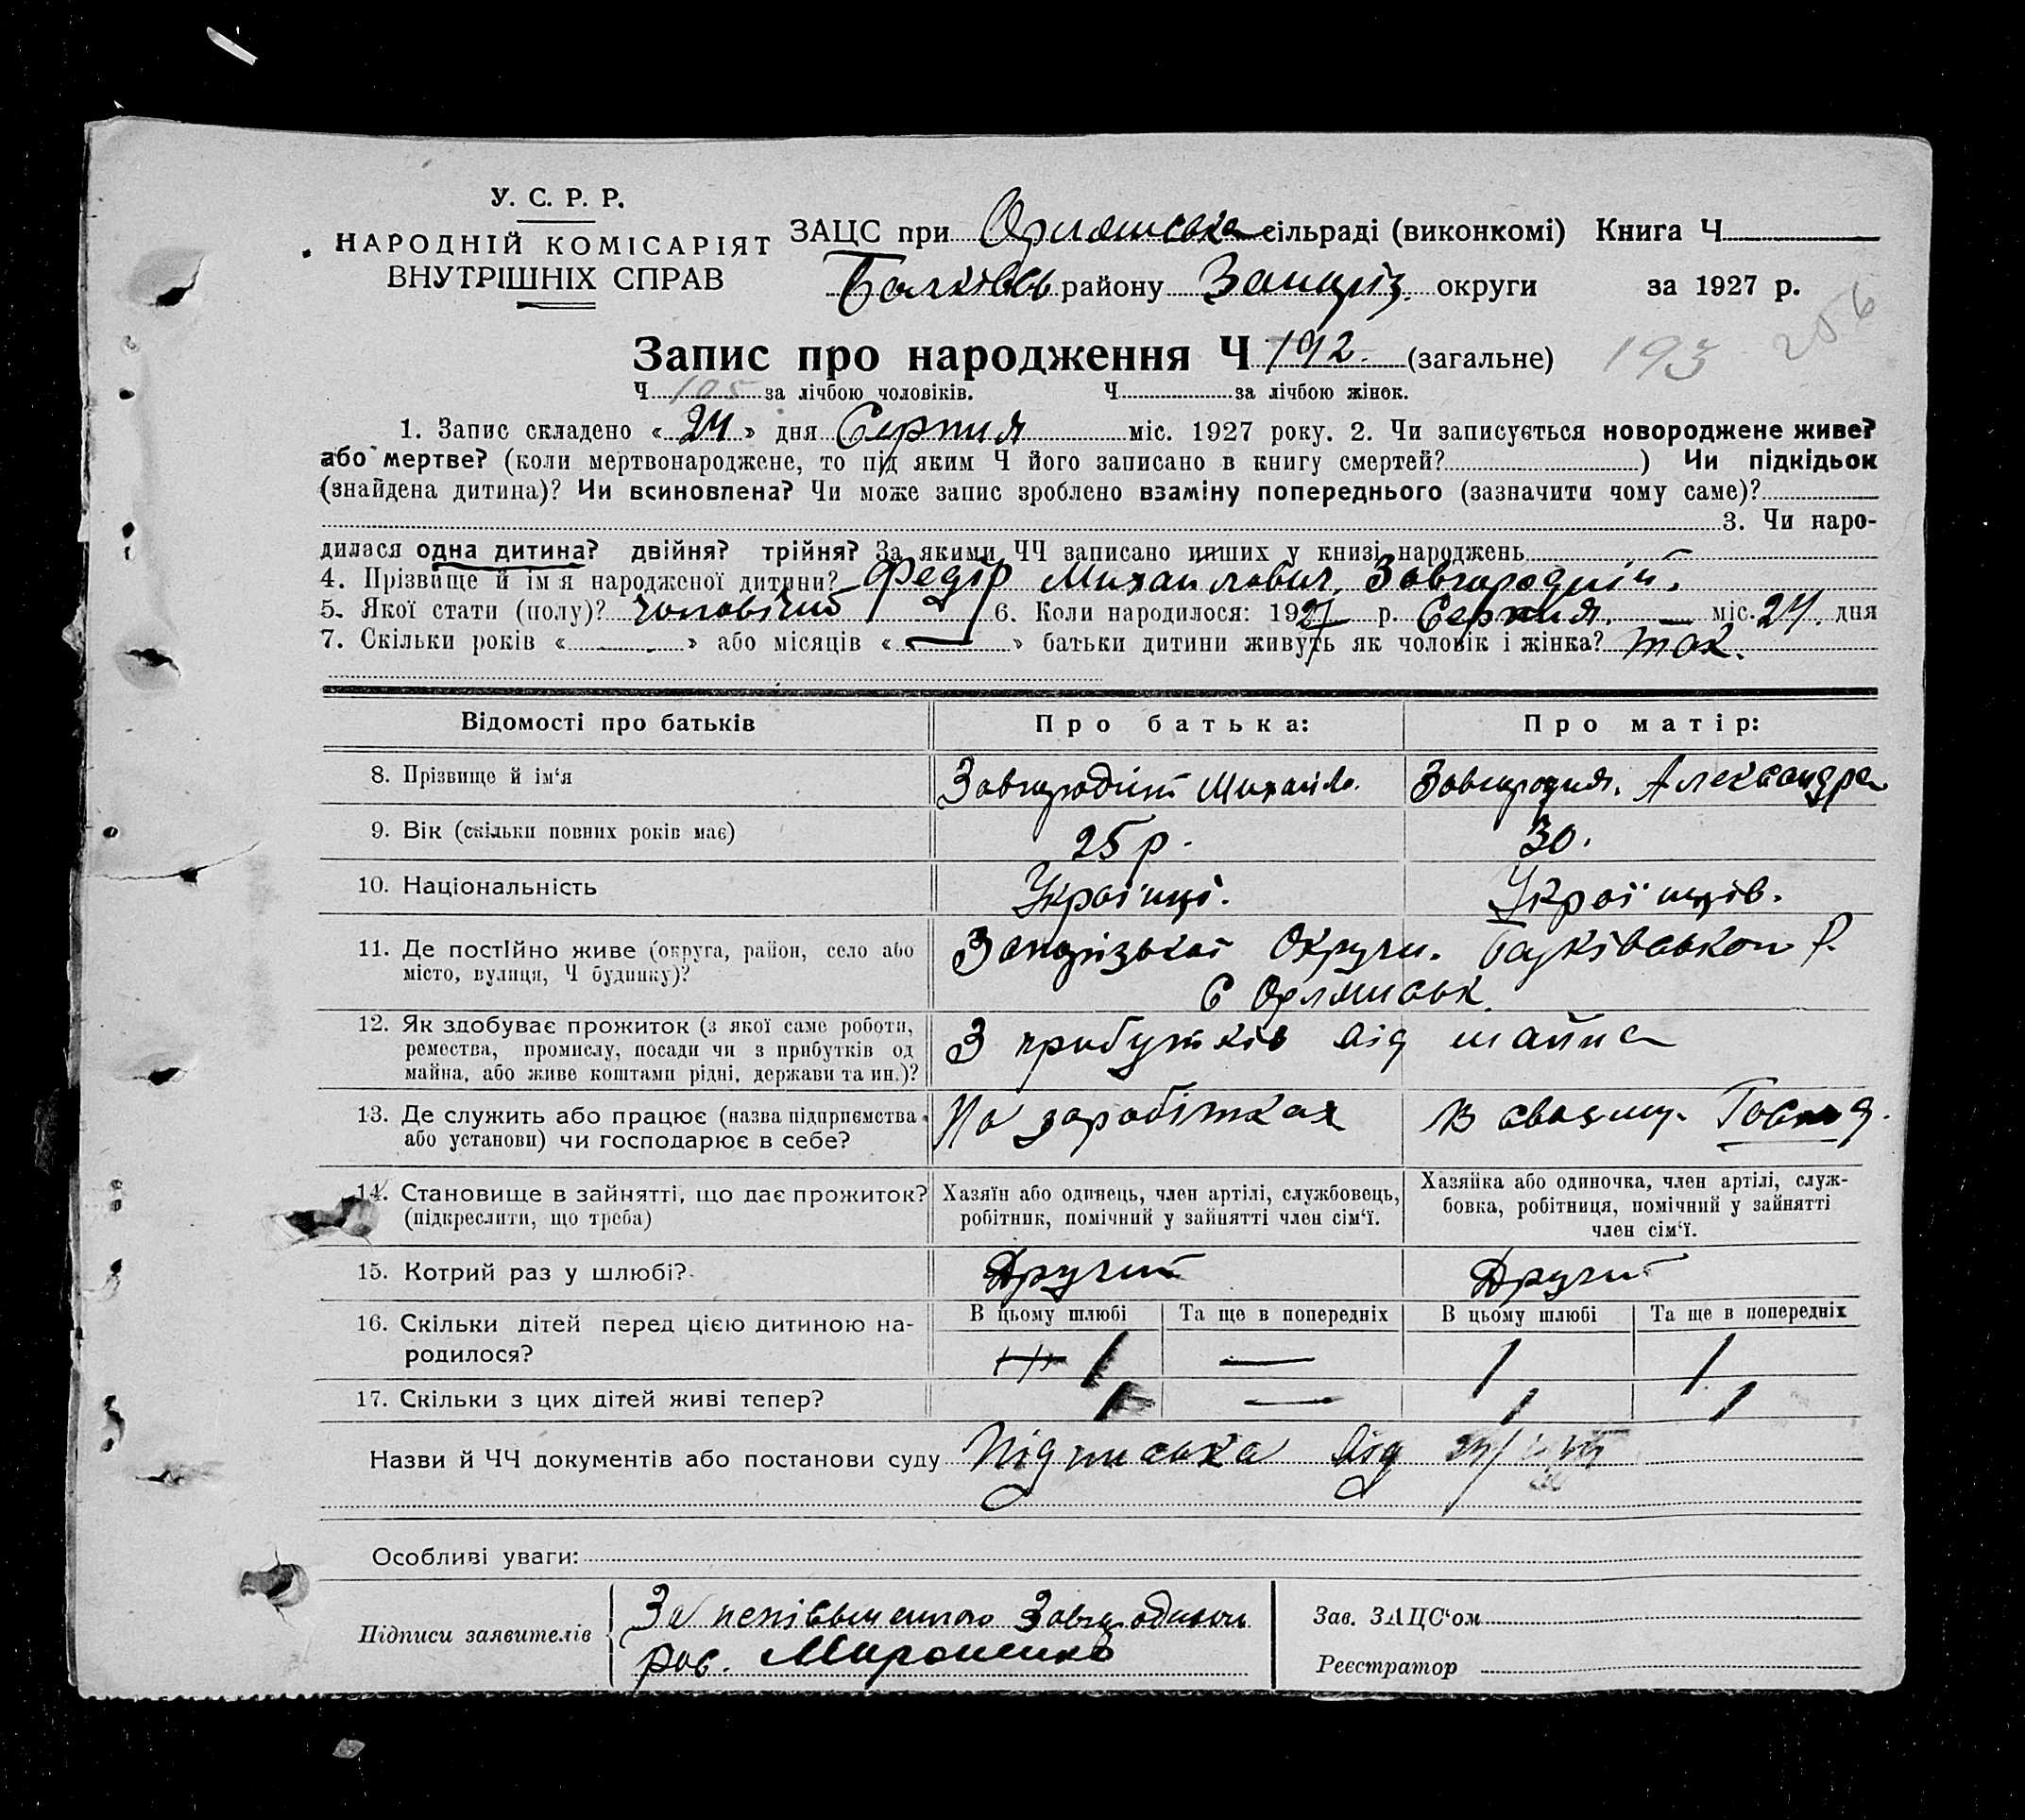 У. С. Р. Р.
НАРОДНІЙ КОМІСАРІЯТ
ВНУТРІШНІХ СПРАВ
ЗАЦС при сільраді (виконкомі) Книга Ч
району Запоріз. округи за 1927 р.
256
Запис про народження Ч 192. (загальне) 193
Ч 105 за лічбою чоловіків. Ч за лічбою жінок.
1. Запис складено « 24 » дня Серпня міс. 1927 року. 2. Чи записується новороджене живе?
або мертве? (коли мертвонароджене, то під яким Ч його записано в книгу смертей? ) Чи підкідьок
(знайдена дитина)? Чи всиновлена? Чи може запис зроблено взаміну попереднього (зазначити чому саме)?
3. Чи наро-
дилася одна дитина? двійня? трійня? За якими ЧЧ записано инших у книзі народжень
4. Прізвище й ім'я народженої дитини? Федір Михайлович Завгородній.
5. Якої стати (полу)? чоловічий 6. Коли народилося: 1927 р. Серпня. — міс. 24. дня
7. Скільки років « » або місяців « — » батьки дитини живуть як чоловік і жінка? так.
Відомості про батьків Про батька: Про матір:
8. Прізвище й ім'я Завгородній Михайло. Завгородня. Александра
9. Вік (скільки повних років має) 25 р. 30.
10. Національність Украінці. Украї нців.
11. Де постійно живе (округа, район, село або
місто, вулиця, Ч будинку)?
Округи. Р.
С
12. Як здобуває прожиток (з якої саме роботи,
ремества, промислу, посади чи з прибутків од
майна, або живе коштами рідні, держави та ин.)?
З прибутків від майна
13. Де служить або працює (назва підприємства
або установи) чи господарює в себе?
На заробітках В своэму. Господ.
14. Становище в зайнятті, що дає прожиток?
(підкреслити, що треба)
Хазяїн або одинець, член артілі, службовець,
робітник, помічний у зайнятті член сім'ї.
Хазяйка або одиночка, член артілі, служ-
бовка, робітниця, помічний у зайнятті
член сім'ї.
15. Котрий раз у шлюбі? Другий Другий
В цьому шлюбі Та ще в попередніх В цьому шлюбі Та ще в попередніх
16. Скільки дітей перед цією дитиною на-
родилося?
1 — 1 1
17. Скільки з цих дітей живі тепер? 1 — 1 1
Назви й ЧЧ документів або постанови суду Підписька від
Особливі уваги:
Підписи заявителів
За
рос. Мироненко
Зав. ЗАЦС'ом
Реєстратор